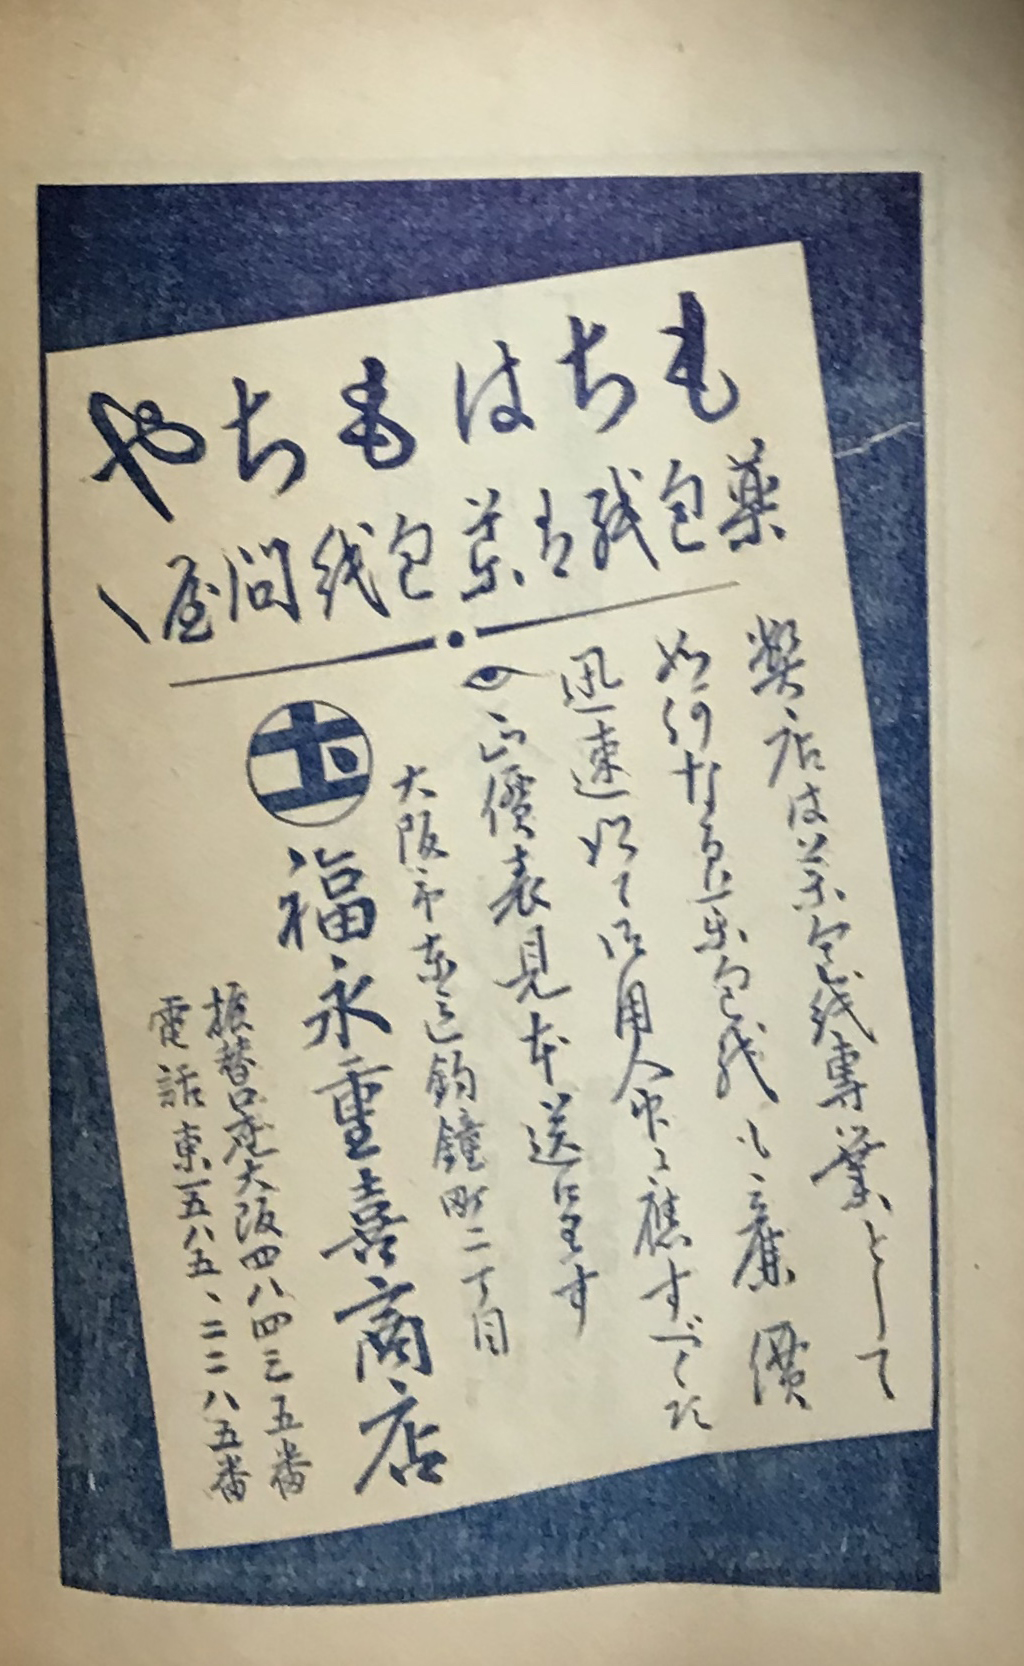 もちはもちや
薬包紙は薬包紙問屋へ
弊店は薬包紙専業として
如何なる薬包紙も廉價
迅速に御用命に應すべく候
正價表見本送呈す
大阪市東区釣鐘町二丁目
玉 福永重喜商店
振替口座大阪四八四三五番
電話東一五八五、二二八五番